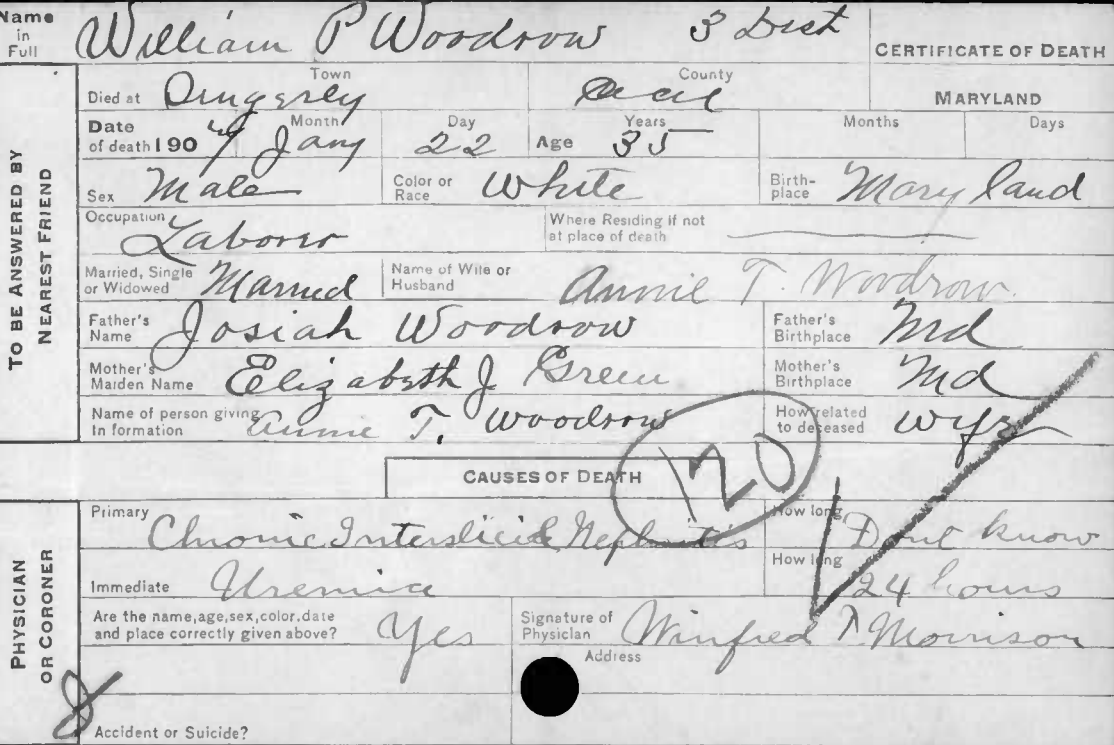 Name in Full William P Woodrow 3 Dist
CERTIFICATE OF DEATH
Town County
Died at Cecil MARYLAND
Date of death 190 Month Jany Day 22 Age Years 35 Months Days
Sex Male Color or Race White Birthplace Maryland
Occupation Laborer Where Residing if not at place of death
Married, Single or Widowed Married Name of Wife or Husband Annie T. Woodrow.
Father's Name Josiah Woodrow Father's Birthplace Md
Mother's Maiden Name Elizabeth J Green Mother's Birthplace Md
Name of person giving Information Annie T. Woodrow How related to deceased Wife
TO BE ANSWERED BY NEAREST FRIEND
CAUSES OF DEATH
120
Primary Chronic Intersticial Nephritis How long Dont know
Immediate Uremia How long 24 hours
Are the name, age, sex, color, date and place correctly given above? Yes Signature of Physician Winfred T Morrison
Address
Accident or Suicide?
PHYSICIAN OR CORONER